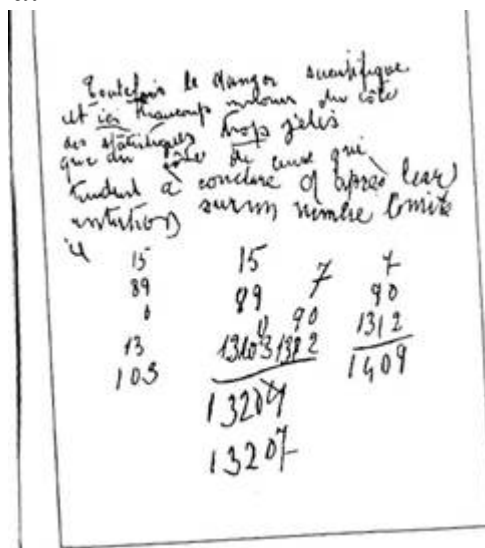 Toutefois le danger scientifique
et ici beaucoup moins du côté
des statistiques trop zélés
que du côté de ceux qui
tendent à conclure d'après leur
intuition sur un nombre limité
15 15 7 7
89 89 90 90
0 0 1312 1312
13 13103 1409
103 13204
13207